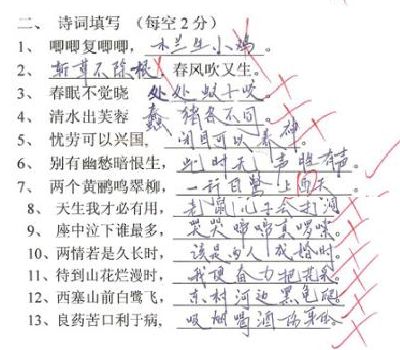 二、 诗词填写 （每空2分）
1、 唧唧复唧唧， 木兰生小鸡。
2、 斩草不除根， 春风吹又生。
3、 春眠不觉晓 处处蚊子咬
4、 清水出芙蓉 蠢猪各不同。
5、 忧劳可以兴国， 闭目可以养神
6、 别有幽愁暗恨生， 此时无声胜有声
7、 两个黄鹂鸣翠柳， 一行白鹭上西天
8、 天生我才必有用， 老鼠儿子会打洞
9、 座中泣下谁最多， 哭哭啼啼真啰嗦。
10、 两情若是久长时， 该是两人成婚时。
11、 待到山花烂漫时， 我要奋力把花采。
12、 西塞山前白鹭飞， 东村河边黑龟爬。
13、 良药苦口利于病， 吸烟喝酒伤身体。